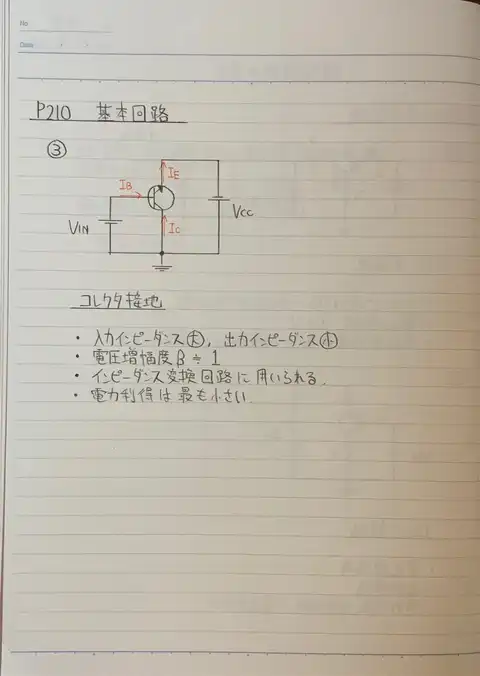 No.
Date
P210 基本回路
③
IE
IB
VCC
VIN
IC
コレクタ接地
・入力インピーダンス大, 出力インピーダンス小
・電圧増幅度β≒1
・インピーダンス変換回路に用いられる.
・電力利得は最も小さい.